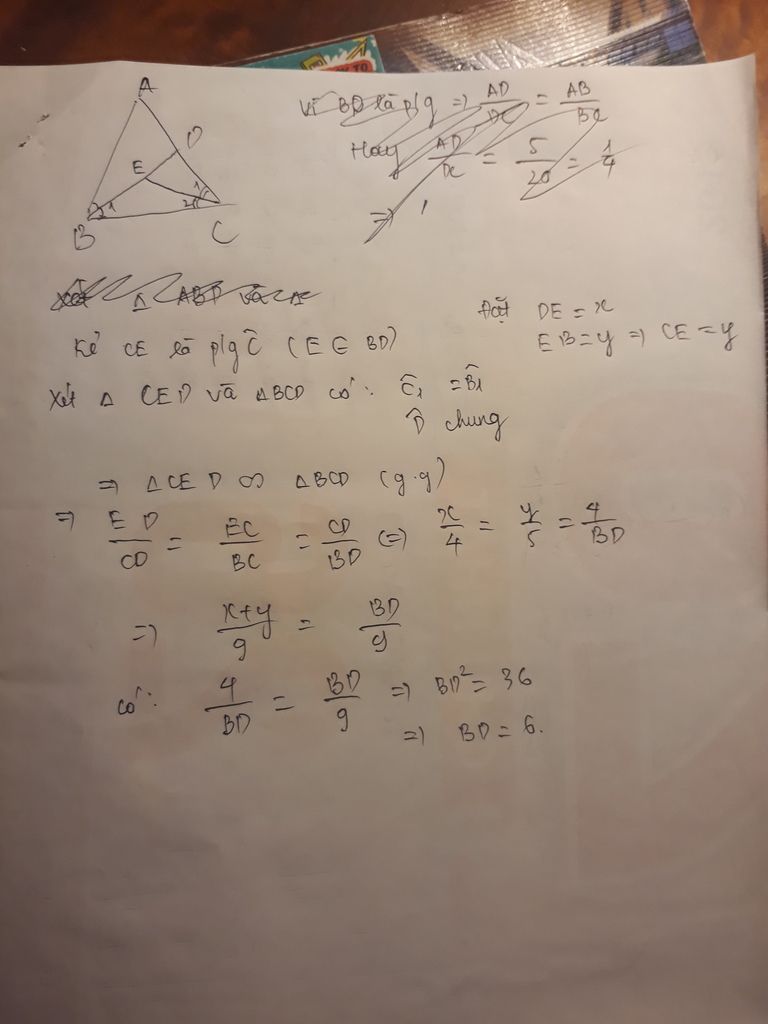 A
D
E
1
1
2
B
C
Vì BD là p/g => AD/DC = AB/BC
Hay AD/DC = 5/20 = 1/4
=>
Xét Δ ABD và
Đặt DE = x
Kẻ CE là p/g Ĉ (E ∈ BD)
EB = y => CE = y
Xét Δ CED và ΔBCD có: Ĉ1 = B̂1
D̂ chung
=> ΔCED ∽ ΔBCD (g.g)
=> ED/CD = EC/BC = CD/BD (=) x/4 = y/5 = 4/BD
=> x+y/9 = BD/9
có: 4/BD = BD/9 => BD² = 36
=> BD = 6.